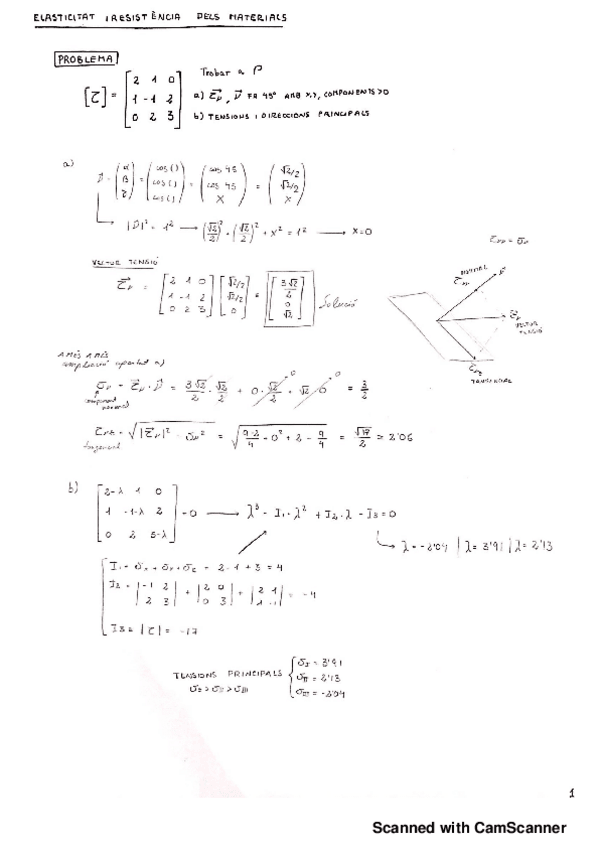 ELASTICITAT I RESISTÈNCIA DELS MATERIALS
PROBLEMA
[τ] = [2 1 0; 1 -1 2; 0 2 3]
Trobar a P
a) τν, ν FA 45º AMB X,Y, COMPONENTS>0
b) TENSIONS I DIRECCIONS PRINCIPALS
a) ν = (α β γ) = (cos() cos() cos()) = (cos 45 cos 45 X) = (√2/2 √2/2 X)
|ν|² = 1² → (√2/2)² + (√2/2)² + x² = 1² → X=0
VECTOR TENSIÓ
τν = [2 1 0; 1 -1 2; 0 2 3] [√2/2; √2/2; 0] = [3√2/2; 0; √2] Solució
NORMAL
VECTOR TENSIÓ
TANGENCIAL
A MÉS A MÉS
σν = τν · ν = 3√2/2 · √2/2 + 0 · √2/2 + √2 · 0 = 3/2
component normal
= √|τν|² - σν² = √9·2/4 - 0² + 2 - 9/4 = √17/2 = 2'06
tangencial
b) [2-λ 1 0; 1 -1-λ 2; 0 2 3-λ] = 0 → λ³ - I₁·λ² + I₂·λ - I₃ = 0
λ = -2'04 | λ = 3'91 | λ = 2'13
I₁ = σx + σy + σz = 2 - 1 + 3 = 4
I₂ = |-1 2; 2 3| + |2 0; 0 3| + |2 1; 1 -1| = -4
I₃ = |τ| = -17
TENSIONS PRINCIPALS
σI > σII > σIII
σI = 3'91
σII = 2'13
σIII = -2'04
1
Scanned with CamScanner